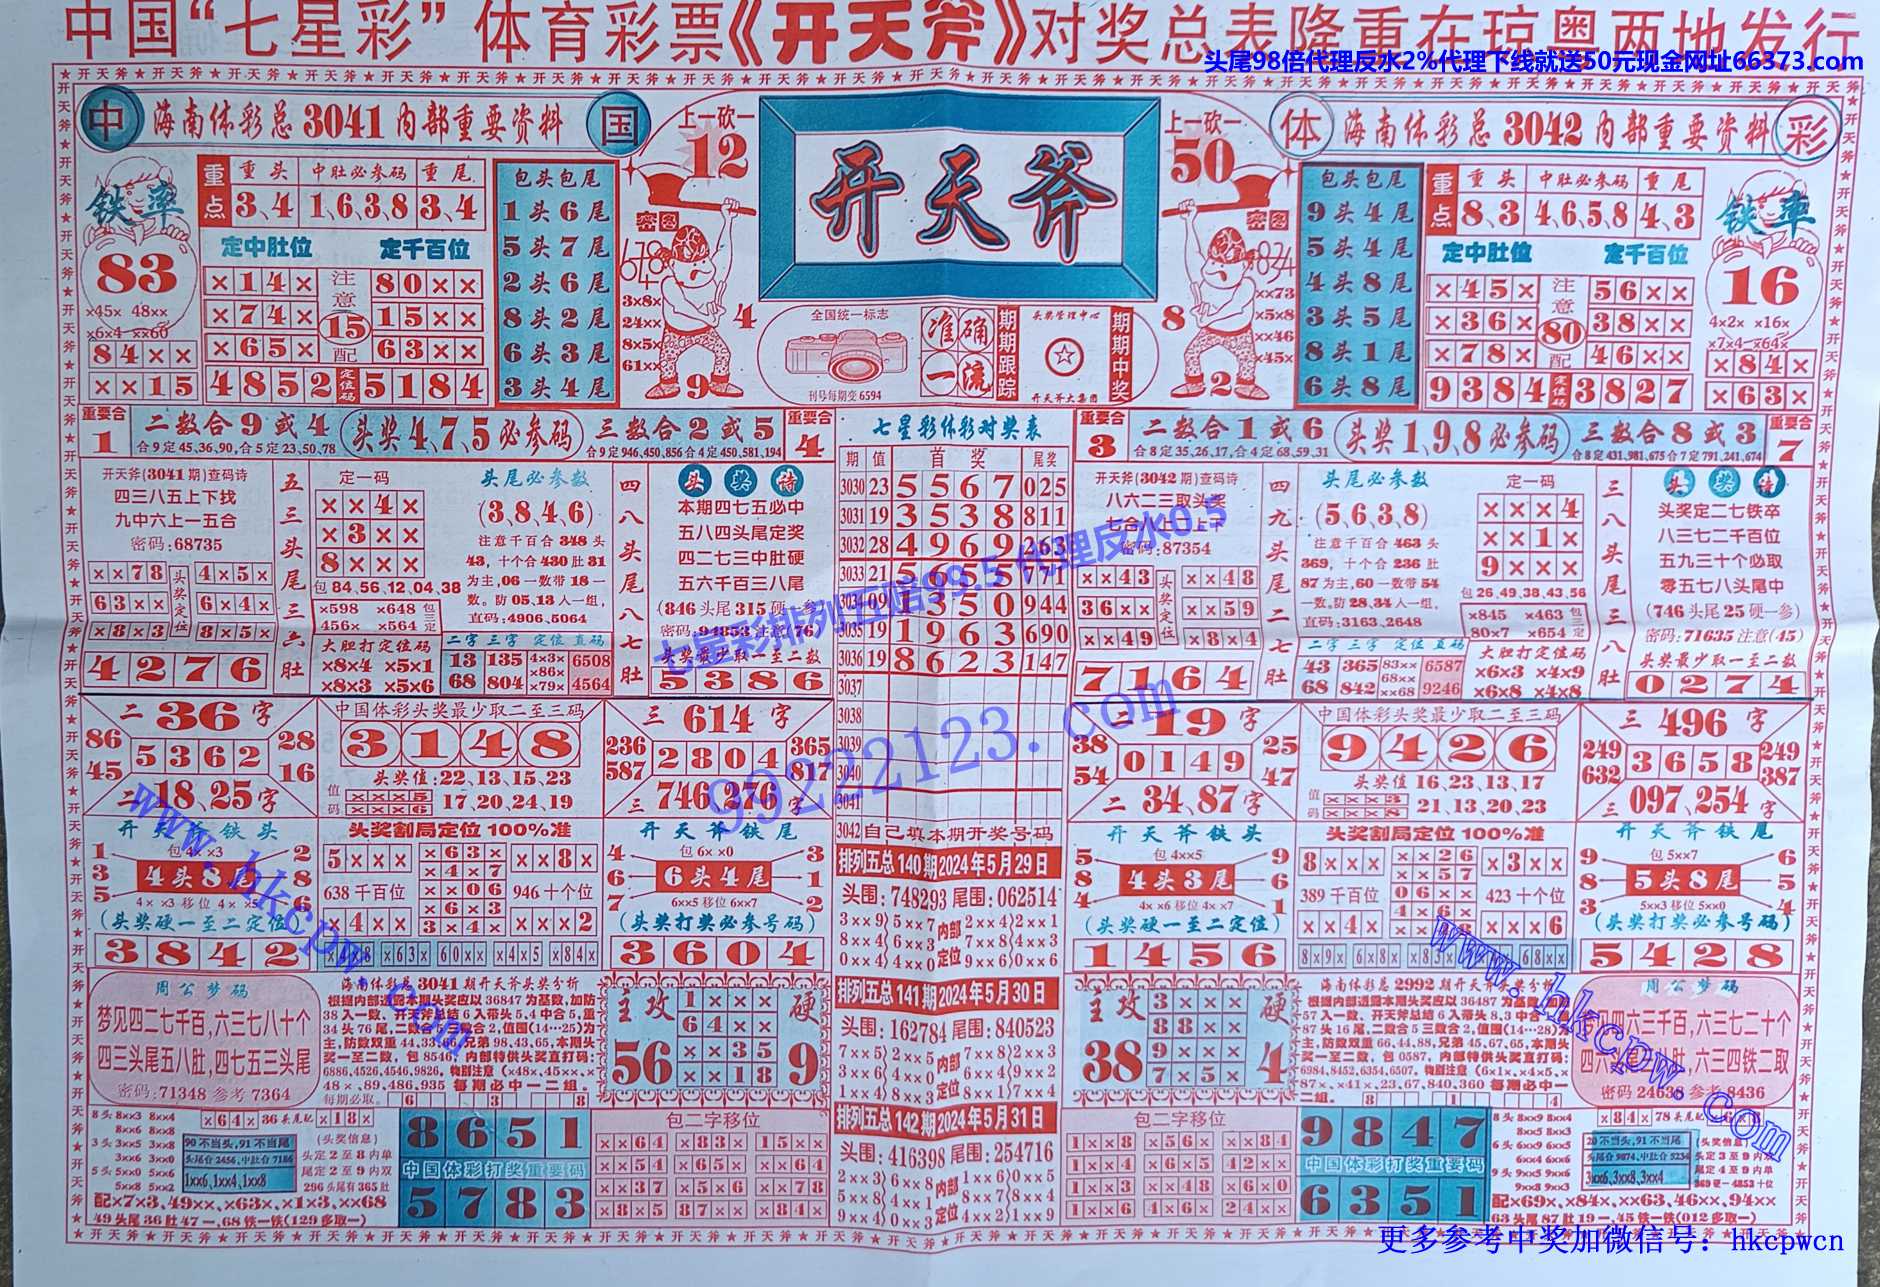 中国“七星彩”体育彩票《开天斧》对奖总表隆重在琼粤两地发行
头尾98倍代理反水2%代理下线就送50元现金网址66373.com
中 海南体彩总3041内部重要资料 国
上一砍一
12
开天斧
上一砍一
50
体 海南体彩总3042内部重要资料 彩
铁率
83
重点
重头 中肚必参码 重尾
3、4 1、6、3、8 3、4
定中肚位 定千百位
×14× 注 80××
×74× 意 15 15××
×65× 配 63××
84××
××15
4852 定位码 5184
包头包尾
1头6尾
5头7尾
2头6尾
8头2尾
6头3尾
3头4尾
密图
3×8×
24××
8×5×
61××
4
9
全国统一标志
刊号每期变6594
准确一流
期期跟踪
头奖管理中心
开天斧大集团
期期中奖
密图
××73
×5×8
××46
×45×
8
2
包头包尾
9头4尾
5头4尾
4头8尾
3头5尾
8头1尾
6头8尾
重点
重头 中肚必参码 重尾
8、3 4、6、5、8 4、3
定中肚位 定千百位
×45× 注 56××
×36× 意 80 38××
×78× 配 46××
9384 定位码 3827
铁率
16
4×2× ×16×
×7×4 ×64×
×84×
×63×
重要合
1
二数合9或4
合9定45,36,90,合5定23,50,78
头奖4、7、5必参码
三数合2或5
合9定946,450,856合4定450,581,194
重要合
4
七星彩体彩对奖表
期 值 首奖 尾奖
3030 23 5567 025
3031 19 3538 811
3032 28 4969 263
3033 21 5655
3034 09 1350 944
3035 19 1963 690
3036 19 8623 147
3037
3038
3039
3040
3041
3042 自己填本期开奖号码
重要合
3
二数合1或6
合8定35,26,17,合4定68,59,31
头奖1、9、8必参码
三数合8或3
合8定431,981,675合7定791,241,674
重要合
7
开天斧(3041期)查码诗
四三八五上下找
九中六上一五合
密码:68735
××78 头奖定位 4×5×
63×× 6×4×
×8×3 8×5×
4276
五三头尾三六肚
定一码
××4×
×3××
8×××
包84,56,12,04,38
×598 ×648
456× ×564
包三定
大胆打定位码
×8×4 ×5×1
×8×3 ×5×6
头尾必参数
(3、8、4、6)
注意千百合348头
43，十个合430肚31
为主,06一数带18一
数。防05,13人一组，
直码:4906,5064
二字 三字 定位 直码
13 135 4×3× 6508
68 804 ×86× ×79× 4564
四八头尾八七肚
头奖诗
本期四七五必中
五八四头尾定奖
四二七三中肚硬
五六千百三八尾
(846头尾315硬一参)
密码:94853注意(76)
头奖最少取一至二数
5386
开天斧(3042期)查码诗
八六二三取头奖
密码:87354
××43 头奖定位 ××48
36×× ××59
××49 ×8×4
7164
四九头尾二七肚
头尾必参数
(5、6、3、8)
注意千百合463头
369，十个合236肚
87为主,60一数带54
一数。防28,34人一组，
直码:3163,2648
二字 三字 定位 直码
43 365 83×× 6587
68 842 68×× ××68 9246
定一码
×××4
××1×
9×××
包26,49,38,43,56
×845 ×463
80×7 ×654
包三定
大胆打定位码
×6×3 ×4×9
×6×8 ×4×8
三八头尾三八肚
头奖诗
头奖定二七铁卒
八三七二千百位
五九三十个必取
零五七八头尾中
(746头尾25硬一参)
密码:71635注意(45)
头奖最少取一至二数
0274
二 36 字
86 5362 28
45 16
二 18、25 字
中国体彩头奖最少取二至三码
3148
头奖值:22、13、15、23
值码 ×××5 ×××6 17、20、24、19
三 614 字
236 2804 365
587 817
三 746、276 字
二 19 字
38 0149 25
54 47
二 34、87 字
中国体彩头奖最少取二至三码
9426
头奖值16、23、13、17
值码 ×××3 ×××8 21、13、20、23
三 496 字
249 3658 249
632 387
三 097、254 字
开天斧铁头
包4××3
1 2
3 4头8尾 8
5 6
4××3移位4××5
(头奖硬一至二定位)
3842
头奖割局定位100%准
5××× ×63× ××8×
×4×7
638千百位 ××06 946十个位
×6×3
×4×× 3×4× ×××6
×4×8 ×63× 60×× ×4×5 ×84×
开天斧铁尾
包6××0
4 3
6 6头4尾 1
7 2
6××5移位6××7
(头奖打奖必参号码)
3604
排列五总140期2024年5月29日
头围:748293尾围:062514
3××9 5××7 内部定位 2××4 2××1
8××4 6××3 7××8 4××3
0××4 4××0 9××6 0××6
排列五总141期2024年5月30日
头围:162784尾围:840523
7××5 2××5 内部定位 7××8 2××3
3××6 4××0 1××6 5××3
8××4 0××3 8××1 7××4
排列五总142期2024年5月31日
头围:416398尾围:254716
2××3 6××8 内部定位 1××6 0××5
5××8 4××1 8××7 8××4
9××4 0××3 4××2 1××9
开天斧铁头
包4××5
5 9
8 4头3尾 6
4 1
4××6移位4××7
(头奖硬一至二定位)
1456
头奖割局定位100%准
8××× ××26 ×3××
××57
389千百位 06×× 423十个位
4×6×
××4× ×××6
8×9× 6×8× ×83× 68××
开天斧铁尾
包5××7
9 6
8 5头8尾 5
3 4
5××3移位5××0
(头奖打奖必参号码)
5428
周公梦码
梦见四二七千百,六三七八十个
四三头尾五八肚,四七五三头尾
密码:71348参考7364
海南体彩总3041期开天斧头奖分析
根据内部透露本期头奖应以36847为基数,加防
38入一数、开天斧总结6入带头5,4中合5,重
34头76尾,二数合5三数合2,值围(14…25)为
主,防数双重44,33,66,兄弟98,43,65,本期头
奖一至二数，包8546，内部特供头奖直打码:
6886,4526,4546,9826。特别注意(×48×,45××,×
48×、89,486,935每期必中一二组。
每期必取。 6 3 8
主攻
56
1×××
64××
××35
××18
硬
9
主攻
38
3×××
88××
9×××
7×5×
硬
4
海南体彩总2992期开天斧头奖分析
根据内部透露本期头奖应以36487为基数
57入一数、开天斧总结6入带头8,3中合5,重
87头16尾,二数合5三数合2,值围(14…28)为
主,防数双重66,44,88,兄弟45,67,65,本期头
奖一至二数，包0587，内部特供头奖直打码:
6984,8452,6354,6507。特别注意(6×1×,×4×5,×
87×、×41×、23,67,840,360每期必中一
二组。 8 1 4
周公梦码
六三七二十个
六三四铁二取
密码24638参考8436
8头 8××3 8××4
8××6 8××8
3头 3××5 3××8
3××6 3××0
5头 5××0 5××6
5××8 5××2
×64× 36头尾配 ×18×
90不当头,91不当尾
头尾合2456,中肚合7186
1××6,1××4,1××8
(头奖信息)
头定2至8内单
尾定2至9内双
296头尾有365肚
配×7×3、49××、×63×、×1×3、××68
49头尾36肚47一,68铁一铁(129多取一)
8651
中国体彩打奖重要码
5783
包二字移位
××64 ×83× 15××
××54 ×65× ××64
××37 ×5×6 ××78
8×5× ×87× ××84×
包二字移位
1××8 ×56× ××84
1××4 ×6×5 42××
1××3 ×48× ×6×0
1××6 4×6× 24××
9847
中国体彩打奖重要码
6351
8头 8××9 8××4
8××5 8××3
6头 6××9 6××5
6××8 6××4
9头 9××5 9××6
9××8 9××3
×84× 78头尾配 ×6××
20不当头,91不当尾
头尾合9874,中肚合5234
3××6,3××8,3××4
(头奖信息)
头定3至9内单
尾定4至9内单
369硬一4853十位
配×69×、×84×、××63、46××、94××
63头尾87肚19一,45铁一铁(012多取一)
七星彩排列五赔99.5代理反水0.5
99222123.com
www.hkcpw.com
www.hkcpw.com
更多参考中奖加微信号：hkcpwcn